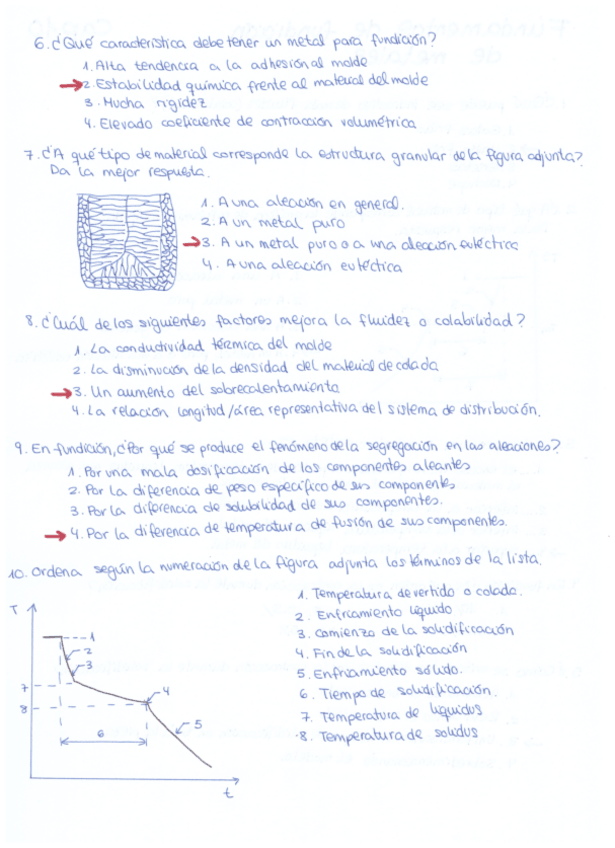 6. ¿Qué característica debe tener un metal para fundición?
1. Alta tendencia a la adhesión al molde
2. Estabilidad química frente al material del molde
3. Mucha rigidez
4. Elevado coeficiente de contracción volumétrica
7. ¿A qué tipo de material corresponde la estructura granular de la figura adjunta?
Da la mejor respuesta.
1. A una aleación en general.
2. A un metal puro
3. A un metal puro o a una aleación eutéctica
4. A una aleación eutéctica
8. ¿Cuál de los siguientes factores mejora la fluidez o colabilidad?
1. La conductividad térmica del molde
2. La disminución de la densidad del material de colada
3. Un aumento del sobrecalentamiento
4. La relación longitud/área representativa del sistema de distribución.
9. En fundición, ¿Por qué se produce el fenómeno de la segregación en las aleaciones?
1. Por una mala dosificación de los componentes aleantes
2. Por la diferencia de peso específico de sus componentes
3. Por la diferencia de solubilidad de sus componentes.
4. Por la diferencia de temperatura de fusión de sus componentes.
10. Ordena según la numeración de la figura adjunta los términos de la lista.
1. Temperatura de vertido o colado.
2. Enfriamiento líquido
3. Comienzo de la solidificación
4. Fin de la solidificación
5. Enfriamiento sólido.
6. Tiempo de solidificación.
7. Temperatura de liquidus
8. Temperatura de solidus
T
1
2
3
7
4
8
5
6
t